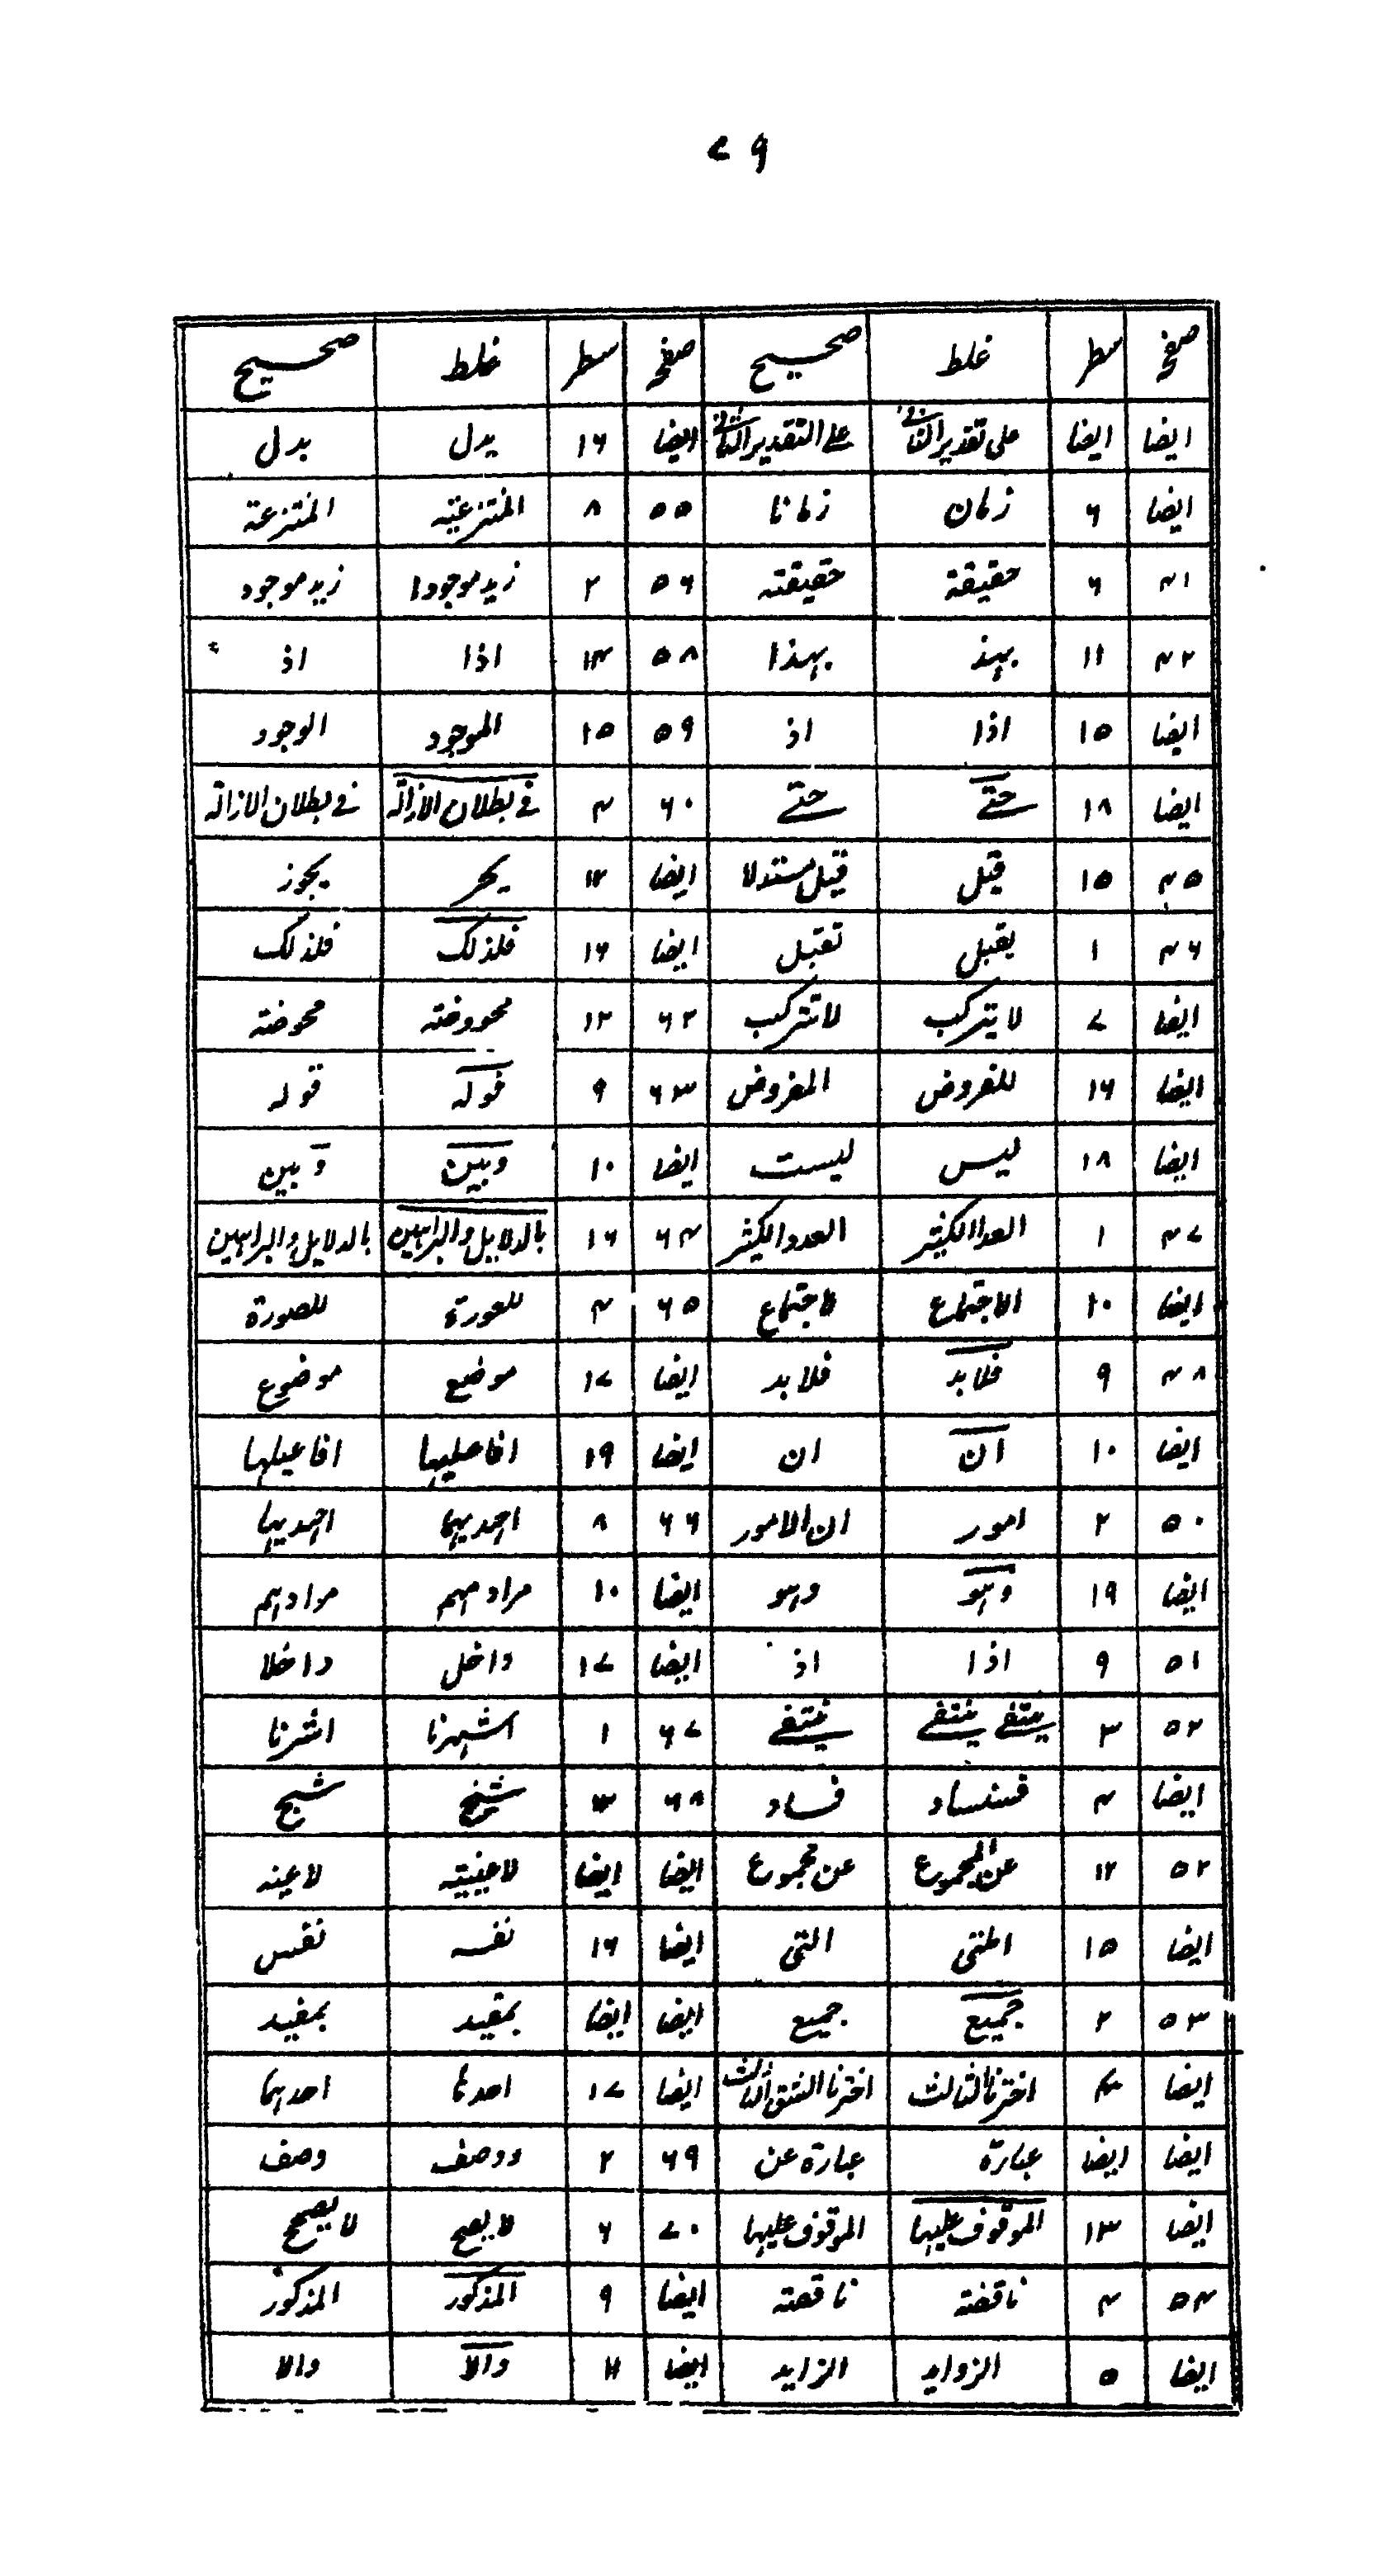 ۷۹
صفحہ سطر غلط صحیح صفحہ سطر غلط صحیح
ایضا ایضا علی تقدیر الثانی علی التقدیر الثانی ایضا ۱۶ یدل بدل
ایضا ۶ زمان زمانا ۵۵ ۸ المنتزعیتہ المنتزعة
۴۱ ۶ حقیقة حقیقتہ ۵۶ ۲ زید موجودا زید موجود
۴۲ ۱۱ بہذ بہذا ۵۸ ۱۴ اذا اذ
ایضا ۱۵ اذا اذ ۵۹ ۱۵ الموجود الوجود
ایضا ۱۸ حتے حتے ۶۰ ۴ فے بطلان الازالہ فے بطلان الازالہ
۴۵ ۱۵ قیل قیل مستدلا ایضا ۱۲ یجوز
۴۶ ۱ یقبل تقبل ایضا ۱۶ فلذلک فلذلک
ایضا ۷ لا یترکب لا تترکب ۶۲ ۱۲ محووضتہ محوضتہ
ایضا ۱۶ للفروض المفروض ۶۳ ۹ قولہ قولہ
ایضا ۱۸ لیس لیست ایضا ۱۰ وبین و بین
۴۷ ۱ العدا الکثیر العدد الکثیر ۶۴ ۱۶ بالدلایل والبراہین بالدلایل والبراہین
ایضا ۱۰ الاجتماع لاجتماع ۶۵ ۴ للعورة للصورة
۴۸ ۹ فلابد فلابد ایضا ۱۷ موضع موضوع
ایضا ۱۰ ان ان ایضا ۱۹ افاعلیہا افاعیلہا
۵۰ ۲ امور ان الامور ۶۶ ۸ احدیہما احدیہا
ایضا ۱۹ وہو وہو ایضا ۱۰ مرادمہم مرادہم
۵۱ ۹ اذا اذ ایضا ۱۷ داخل داخلا
۵۲ ۳ ینتفے ینتفے ینتفے ۶۷ ۱ اشہرنا اشرنا
ایضا ۴ فسنساد فساد ۶۸ ۳ شبح
۵۲ ۱۲ عن المجموع عن مجموع ایضا ایضا لاعینیتہ لاعینہ
ایضا ۱۵ التی ایضا ۱۶ نفسہ نفس
۵۳ ۲ جمیع جمیع ایضا ایضا بمقید بمفید
ایضا ۴ اخترنا الثالث اخترنا الشق الثالث ایضا ۱۷ احدہما
ایضا ایضا عبارة عبارة عن ۶۹ ۲ ووصف وصف
ایضا ۱۳ الموقوف علیہا الموقوف علیہا ۷۰ ۶ لایصح لا یصحح
۵۴ ۴ ناقضتہ ناقصتہ ایضا ۹ المذکور المذکور
ایضا ۵ الزواید الزاید ایضا ۱۱ والا والا